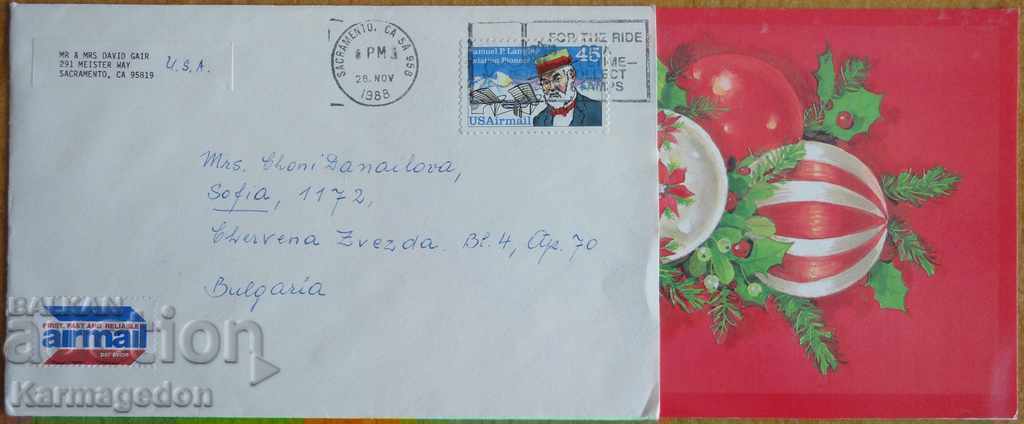 MR & MRS DAVID GAIR
291 MEISTER WAY
SACRAMENTO, CA 95819
U.S.A.
SACRAMENTO, CA SA 958
PM
28 NOV
1988
FOR THE RIDE
Samuel P. Langley
Aviation Pioneer
45
USAirmail
Mrs. Choni Danailova,
Sofia, 1172,
Chervena Zvezda. Bl. 4, Ap. 70
Bulgaria
BALKAN
auction
FIRST, FAST AND RELIABLE
airmail
par avion
Karmagedon